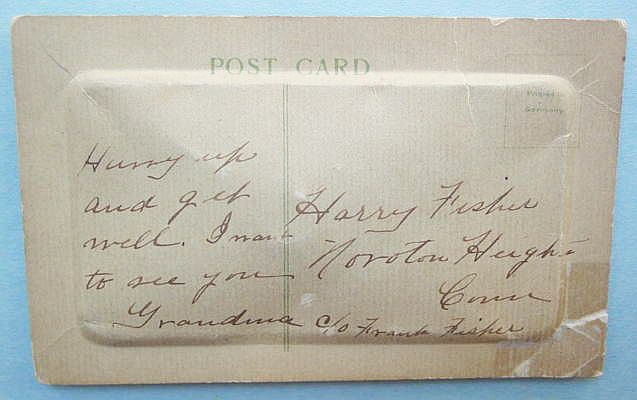 POST CARD
Printed
in
Germany
Hurry up
and get
well. I want
to see you
Grandma
Harry Fisher
Noroton Heights
Conn
c/o Frank Fisher